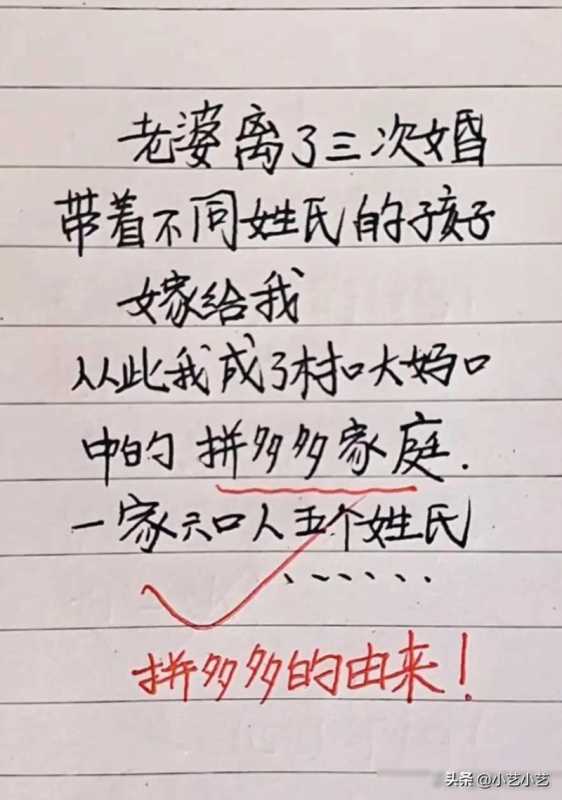 老婆离了三次婚
带着不同姓氏的孩子
嫁给我
从此我成了村口大妈口
中的拼多多家庭.
一家六口人五个姓氏
拼多多的由来!
头条 @小艺小艺